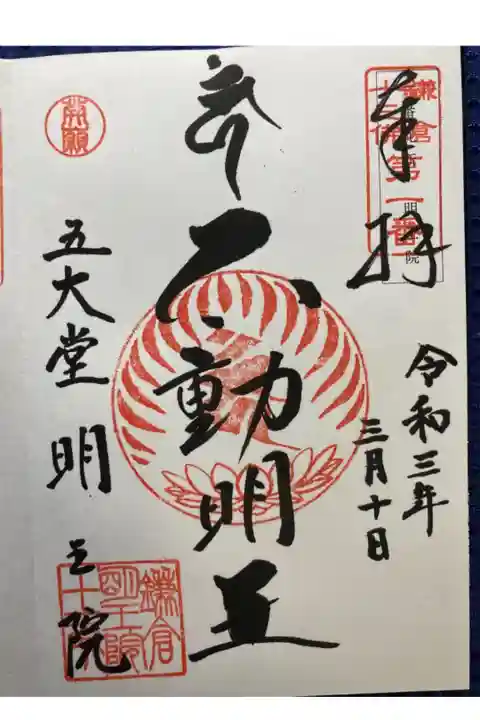 奉拝
鎌倉
十三佛
第一番
令和三年
三月十日
不動明王
開願
五大堂
明王院
鎌倉
明王院